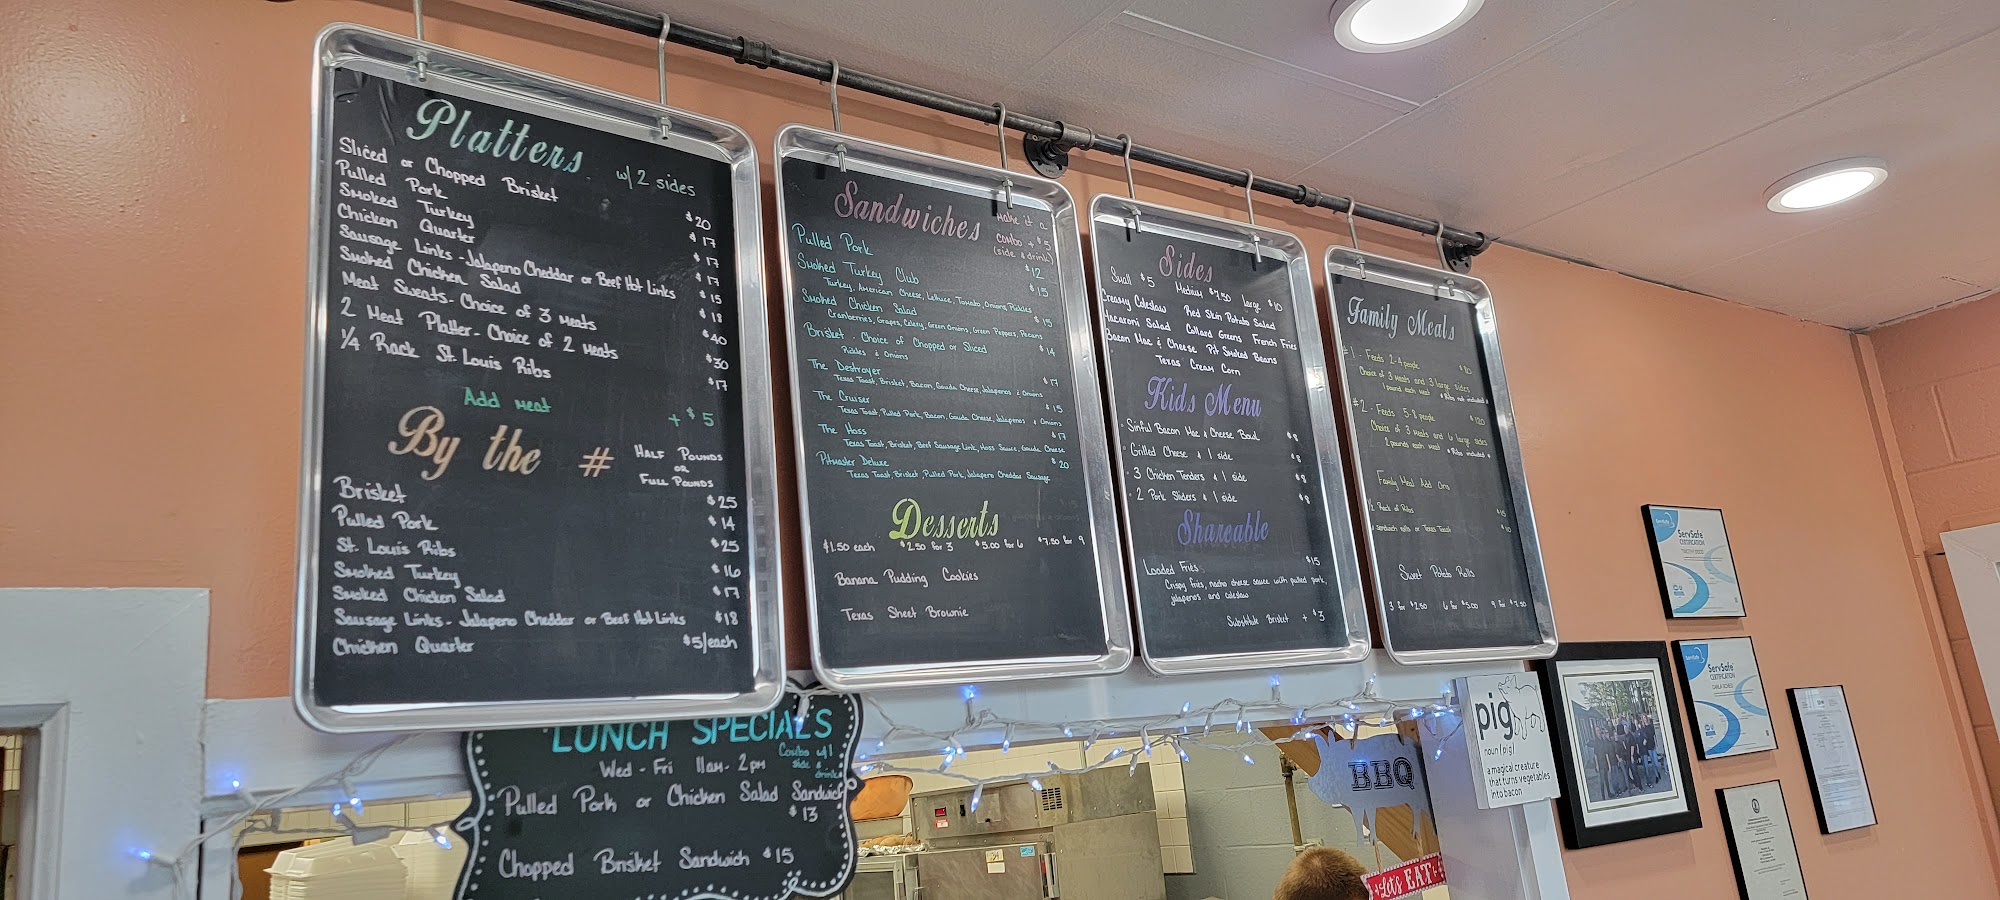 Platters w/ 2 sides
Sliced or Chopped Brisket $20
Pulled Pork $17
Smoked Turkey $17
Chicken Quarter $17
Sausage Links - Jalapeno Cheddar or Beef Hot Links $15
Smoked Chicken Salad $18
Meat Sweats - Choice of 3 meats $40
2 Meat Platter - Choice of 2 meats $30
1/4 Rack St. Louis Ribs $17
Add meat + $5
By the #
Half Pounds
or
Full Pounds
Brisket $25
Pulled Pork $14
St. Louis Ribs $25
Smoked Turkey $16
Smoked Chicken Salad $17
Sausage Links - Jalapeno Cheddar or Beef Hot Links $18
Chicken Quarter $5/each
Sandwiches
Make it a
combo + $5
(side & drink)
Pulled Pork $12
Smoked Turkey Club $15
Turkey, American Cheese, Lettuce, Tomato, Onions, Pickles
Smoked Chicken Salad $15
Cranberries, Grapes, Celery, Green Onions, Green Peppers, Pecans
Brisket - Choice of Chopped or Sliced $14
Pickles & Onions
The Destroyer $17
Texas Toast, Brisket, Bacon, Gouda Cheese, Jalapenos & Onions
The Cruiser $15
Texas Toast, Pulled Pork, Bacon, Gouda Cheese, Jalapenos & Onions
The Hoss $17
Texas Toast, Brisket, Beef Sausage Link, Hoss Sauce, Gouda Cheese
Pitmaster Deluxe $20
Texas Toast, Brisket, Pulled Pork, Jalapeno Cheddar Sausage
Desserts
$1.50 each $2.50 for 3 $5.00 for 6 $7.50 for 9
Banana Pudding Cookies
Texas Sheet Brownie
Sides
Small $5 Medium $7.50 Large $10
Creamy Coleslaw Red Skin Potato Salad
Macaroni Salad Collard Greens French Fries
Bacon Mac & Cheese Pit Smoked Beans
Texas Cream Corn
Kids Menu
Sinful Bacon Mac & Cheese Bowl $8
Grilled Cheese & 1 side $8
3 Chicken Tenders & 1 side $8
2 Pork Sliders & 1 side $8
Shareable
Loaded Fries $15
Crispy fries, nacho cheese sauce with pulled pork,
jalapenos and coleslaw
Substitute Brisket + $3
Family Meals
#1 - Feeds 2-4 people
Choice of 3 meats and 3 large sides
1 pound each meat *Ribs not included*
#2 - Feeds 5-8 people $120
Choice of 3 meats and 6 large sides
2 pounds each meat *Ribs included*
Family Meal Add Ons
1/2 Rack of Ribs
sandwich rolls or Texas Toast
Sweet Potato Rolls
3 for $2.50 6 for $5.00 9 for $7.50
LUNCH SPECIALS
Combo w/1
side &
drink
Wed - Fri 11am - 2pm
Pulled Pork or Chicken Salad Sandwich
$13
Chopped Brisket Sandwich $15
ServSafe
CERTIFICATION
ServSafe
CERTIFICATION
pig
noun [pig]
a magical creature
that turns vegetables
into bacon
BBQ
Let's EAT